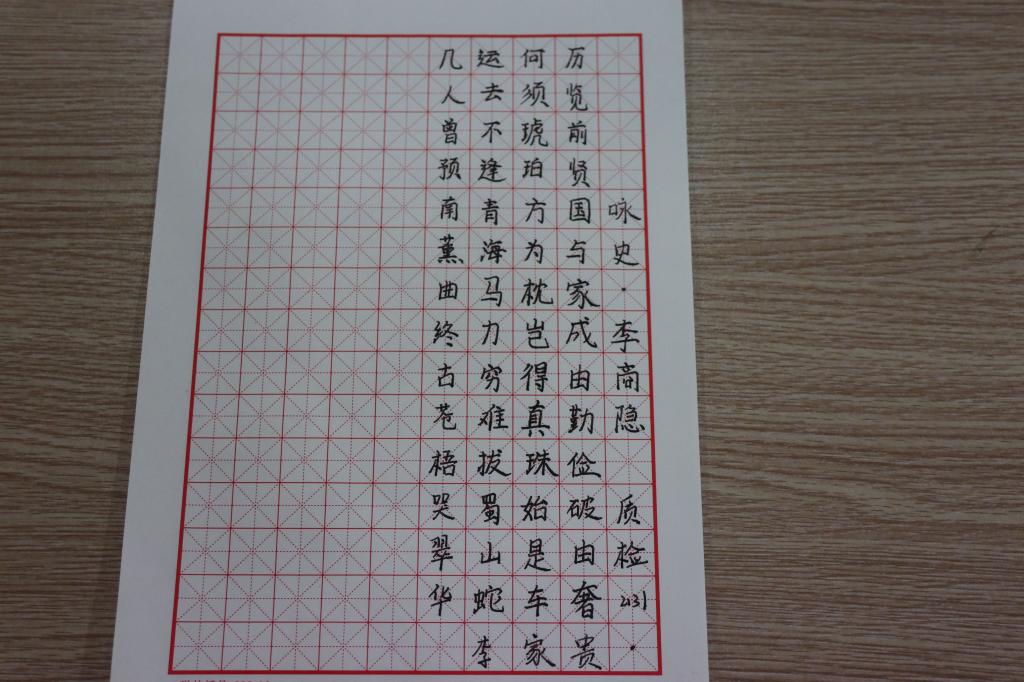 咏史·李商隐 质检2131·
历览前贤国与家成由勤俭破由奢贵
何须琥珀方为枕岂得真珠始是车家
运去不逢青海马力穷难拔蜀山蛇李
几人曾预南薰曲终古苍梧哭翠华